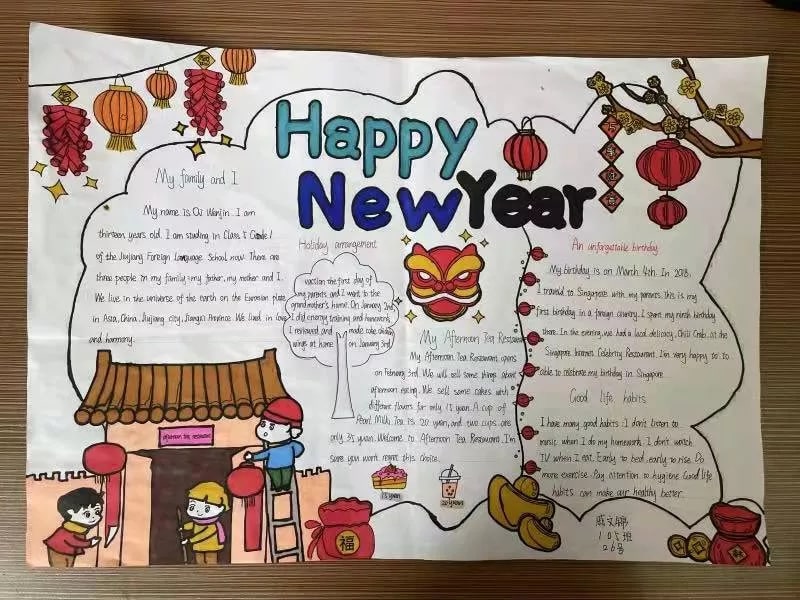 Happy
New Year
My family and I
My name is Qi Wenjin. I am
thirteen years old. I am studing in Class 5 Grade 1
of the Jiujiang Foreign Language School now. There are
three people in my family-my father, my mother and I.
We live in the universe of the earth on the Eurasian plate
in Asia, China, Jiujiang city, Jiangxi Province. We lived in love
and harmony.
Holiday arrangement
vaction the first day of
my parents and I went to the
grandmother's home. On January 2nd,
I did energy training and homework,
I reviewed and made coke chicken
wings at home on January 3rd.
My Afternoon Tea Restaurant
My Afternoon Tea Restaurant opens
on February 3rd. We will sell some things about
afternoon eating. We sell some cakes with
different flavors for only 15 yuan. A cup of
Pearl Milk Tea is 20 yuan, and two cups are
only 35 yuan. Welcome to Afternoon Tea Restaurant. I'm
sure you won't regret this choice.
15 yuan
20 yuan
An unforgetable birthday
My birthday is on March 4th. In 2018,
I traveld to Singapore with my parents. This is my
first birthday in a foreign country. I spent my ninth birthday
there. In the evening, we had a local delicacy, Chili Crab, at the
Singapore Celebrity Restaurant. I'm very happy to to
able to celebrate my birthday in Singapore.
Good life habits
I have many good habits. I don't listen to
music when I do my homework. I don't watch
TV when I eat. Early to bed, early to rise. Do
more exercise. Pay attention to hygiene. Good life
habits can make our healthy better.
afternoon tea restaurant
福
105班
26号